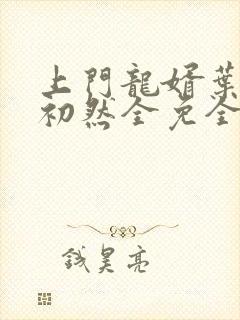 上門龍婿葉
初然全免全
钱昊亮